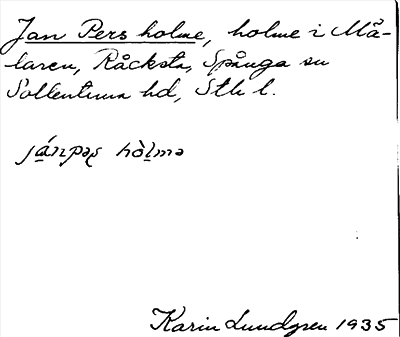 Jan Pers holme, holme i Mä-
laren, Råcksta, Spånga sn
Sollentuna hd, Sthl l.
hòlmə
Karin Lundgren 1935